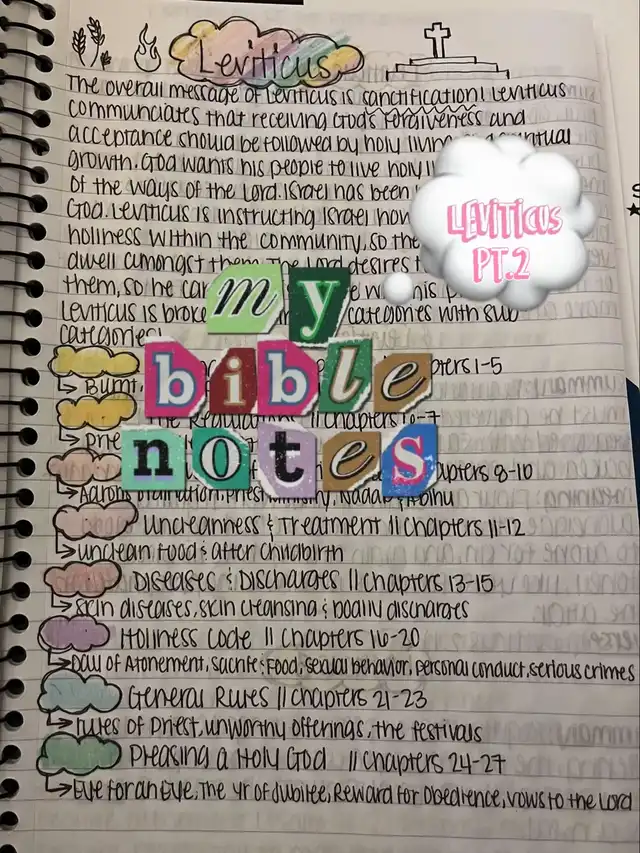 Leviticus
The overall message of Leviticus is sanctification! Leviticus
communciates that receiving God's forgiveness and
acceptance should be followed by holy living
growth. God wants his people to live holy
of the ways of the Lord. Israel has been
God. Leviticus is instructing Israel how
holiness within the community, so the
dwell amongst them. The Lord desires
them, so he can
Leviticus is broken categories with sub
categories!
LEVITICUS
PT.2
my
bible
notes
Chapters 1-5
Burnt,
The Regulations || Chapters 6-7
Chapters 8-10
Aaron's Ordination, Priest Ministry, Nadab & Abihu
Uncleanness & Treatment || Chapters 11-12
unclean food & After childbirth
Diseases & Discharges || Chapters 13-15
skin diseases, skin cleansing & bodily discharges
Holiness Code || Chapters 16-20
Day of Atonement, sacrifice & Food, sexual behavior, personal conduct, serious crimes
General Rules || Chapters 21-23
rules of Priest, unworthy offerings, the festivals
Pleasing a Holy God || Chapters 24-27
Eye for an Eye, The yr of Jubilee, Reward for Obedience, vows to the Lord